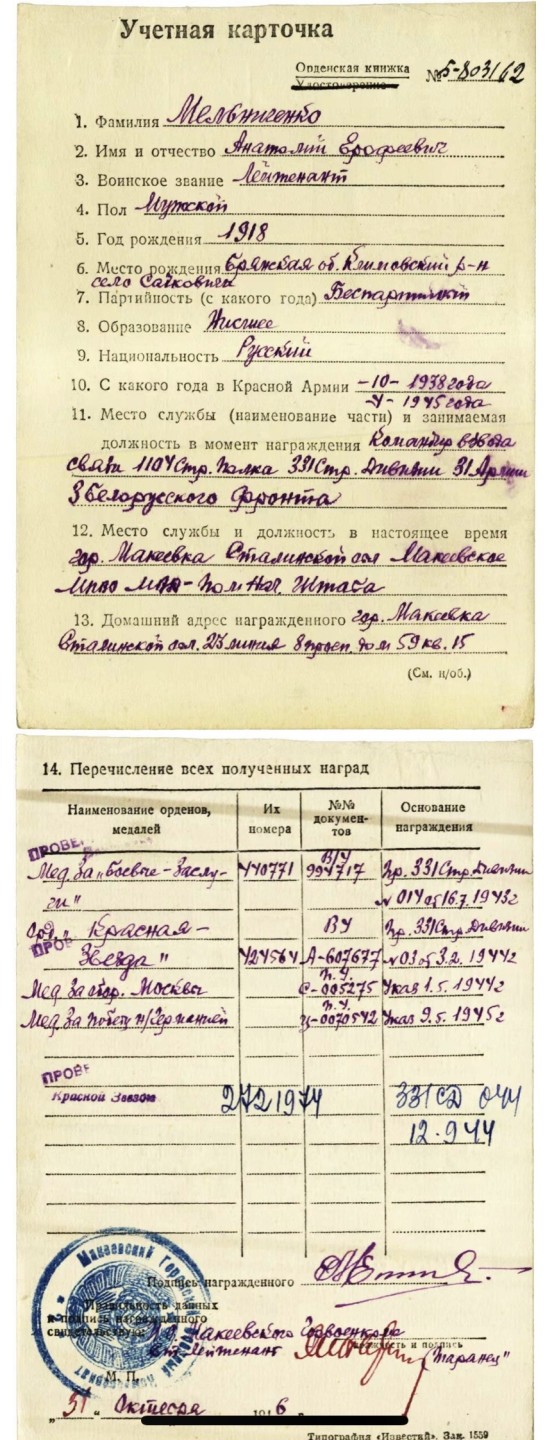 Учетная карточка
Орденская книжка
Удостоверение № Б-803162
1. Фамилия Мельниченко
2. Имя и отчество Анатолий Ерофеевич
3. Воинское звание Лейтенант
4. Пол Мужской
5. Год рождения 1918
6. Место рождения Брянская об. Климовский р-н
село Сачковичи
7. Партийность (с какого года) Беспартийный
8. Образование Высшее
9. Национальность Русский
10. С какого года в Красной Армии -10- 1938 года
-V- 1945 года
11. Место службы (наименование части) и занимаемая
должность в момент награждения Командир взвода
связи 1104 Стр. Полка 331 Стр. Дивизии 31 Армии
3 Белорусского Фронта
12. Место службы и должность в настоящее время
гор. Макеевка Сталинской обл Макеевское
Пом Нач. Штаба
13. Домашний адрес награжденного гор. Макеевка
Сталинской обл. 23 линия 8 просп. дом 59 кв. 15
(См. н/об.)
14. Перечисление всех полученных наград
Наименование орденов, медалей
Их номера
№№ докумен-тов
Основание награждения
ПРОВЕ
Мед. За „Боевые-Заслу- 440771 В/У 994717 Пр. 331 Стр. Дивизии
ги" № 014 от 16.7.1943г
Орд. „Красная- ВУ Пр. 331 Стр. Дивизии
ПРОВ
Звезда" 424564 А-607677 № 03 от 3.2.1944г
Мед За обор. Москвы П.У. С-005275 Указ 1.5.1944г
Мед За победу н/Германией П.У. Ц-0070542 Указ 9.5.1945г
ПРОВЕ
Красной Звезды 2721974 331 СД 044
12.9 44
Подпись награжденного
Правильность данных
и подпись награжденного
свидетельствую: Макеевского Горвоенкома
Ст. Лейтенант (Таранец")
должность и подпись
М. П.
„31" Октября 6 г.
Типография «Известий». Зак. 1559